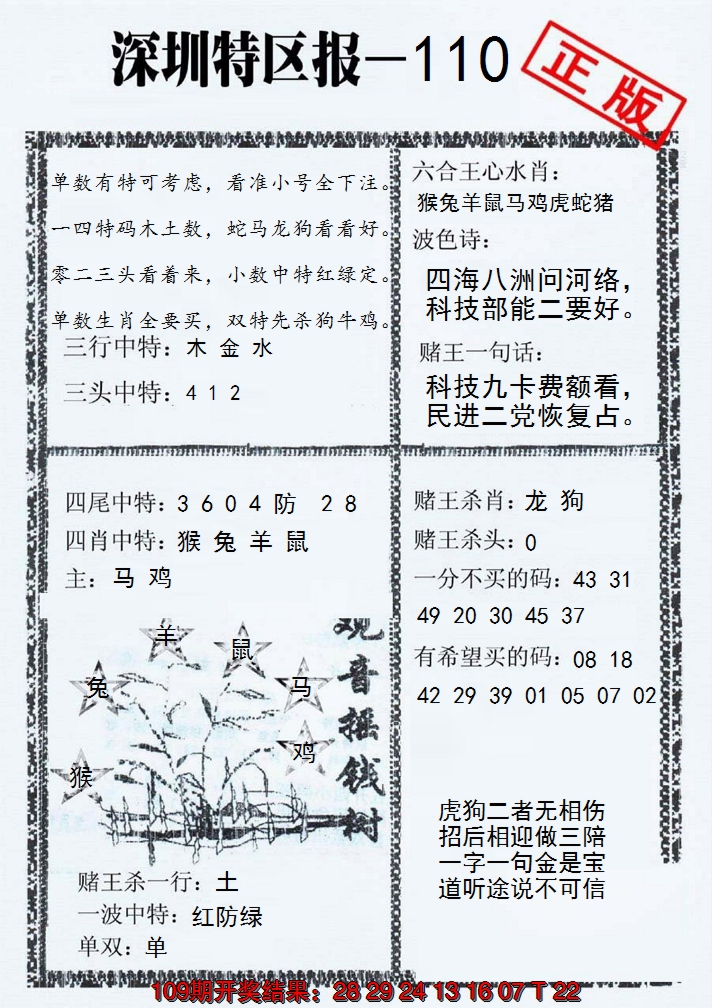 深圳特区报-110
正版
单数有特可考虑，看准小号全下注。
一四特码木土数，蛇马龙狗看看好。
零二三头看着来，小数中特红绿定。
单数生肖全要买，双特先杀狗牛鸡。
三行中特：木 金 水
三头中特：4 1 2
六合王心水肖：
猴兔羊鼠马鸡虎蛇猪
波色诗：
四海八洲问河络，
科技部能二要好。
赌王一句话：
科技九卡费额看，
民进二党恢复占。
四尾中特：3 6 0 4 防 2 8
四肖中特：猴 兔 羊 鼠
主：马 鸡
羊
鼠
兔
马
鸡
猴
观音摇钱树
赌王杀一行：土
一波中特：红防绿
单双：单
赌王杀肖：龙 狗
赌王杀头：0
一分不买的码：43 31
49 20 30 45 37
有希望买的码：08 18
42 29 39 01 05 07 02
虎狗二者无相伤
招后相迎做三陪
一字一句金是宝
道听途说不可信
109期开奖结果：28 29 24 13 16 07 T 22